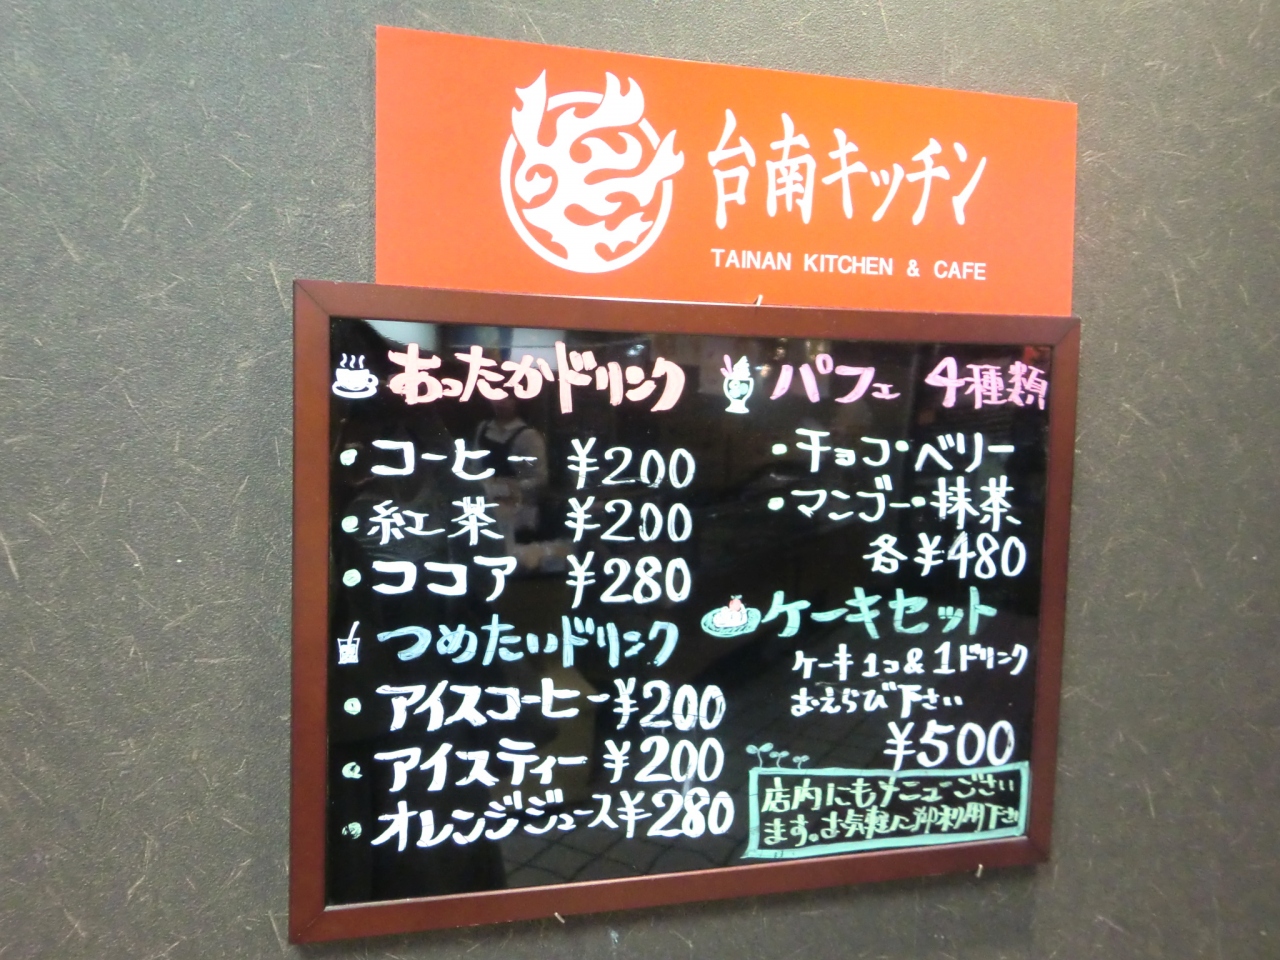 台南キッチン
TAINAN KITCHEN & CAFE
あったかドリンク
・コーヒー ¥200
・紅茶 ¥200
・ココア ¥280
つめたいドリンク
・アイスコーヒー ¥200
・アイスティー ¥200
・オレンジジュース ¥280
パフェ 4種類
・チョコ・ベリー
・マンゴー・抹茶
各¥480
ケーキセット
ケーキ1コ&1ドリンク
おえらび下さい
¥500
店内にもメニューござい
ます。お気軽に御利用下さい